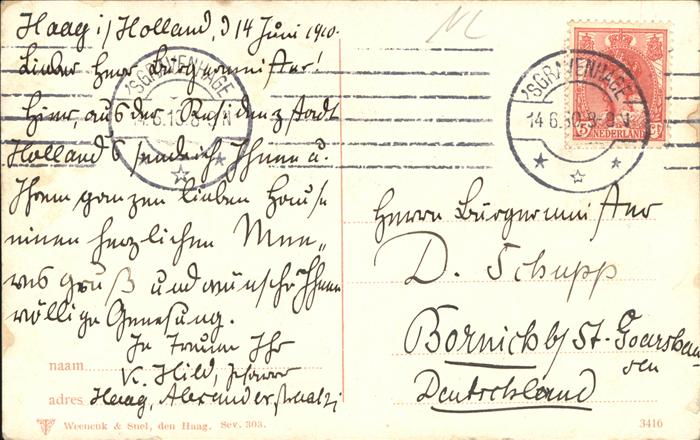 Haag i/ Holland, d 14 Juni 1910.
Lieber Herr Bürgermeister!
Hier, aus der Residenzstadt
Hollands sende ich Ihnen u.
Ihrem ganzen lieben Hause
einen herzlichen Mee-
resgruß und wünsche Ihnen
völlige Genesung.
In Treuen Ihr
K. Hild, Pfarrer
naam
adres Haag, Alexanderstraat
Weenenk & Snel, den Haag. Sev. 303.
'SGRAVENHAGE
14.6.10 8-9 N
'SGRAVENHAGE
14.6.10 8-9 N
5 NEDERLAND
Herrn Bürgermeister
D. Schupp
Bornich b/ St. Goarshau
sen
Deutschland
3416